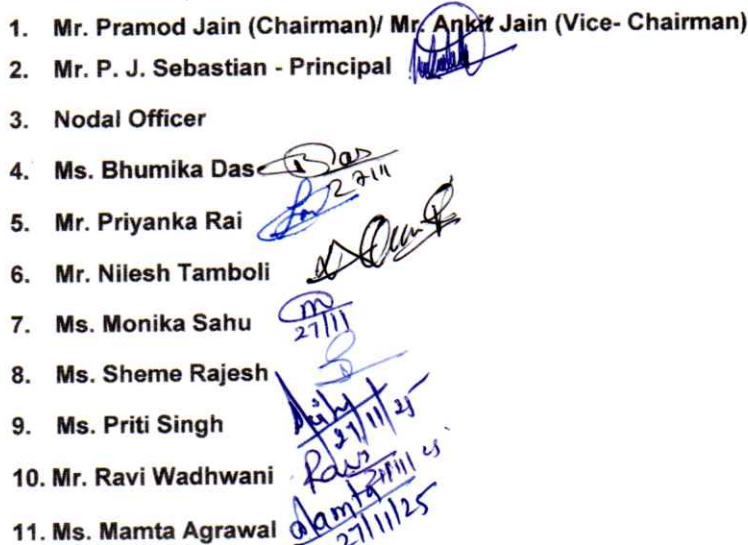 1. Mr. Pramod Jain (Chairman)/ Mr. Ankit Jain (Vice- Chairman)
2. Mr. P. J. Sebastian - Principal
3. Nodal Officer
4. Ms. Bhumika Das Das
27/11
5. Mr. Priyanka Rai
6. Mr. Nilesh Tamboli
7. Ms. Monika Sahu m
27/11
8. Ms. Sheme Rajesh
9. Ms. Priti Singh
27/11/25
10. Mr. Ravi Wadhwani Ravi
11. Ms. Mamta Agrawal Mamta
27/11/25